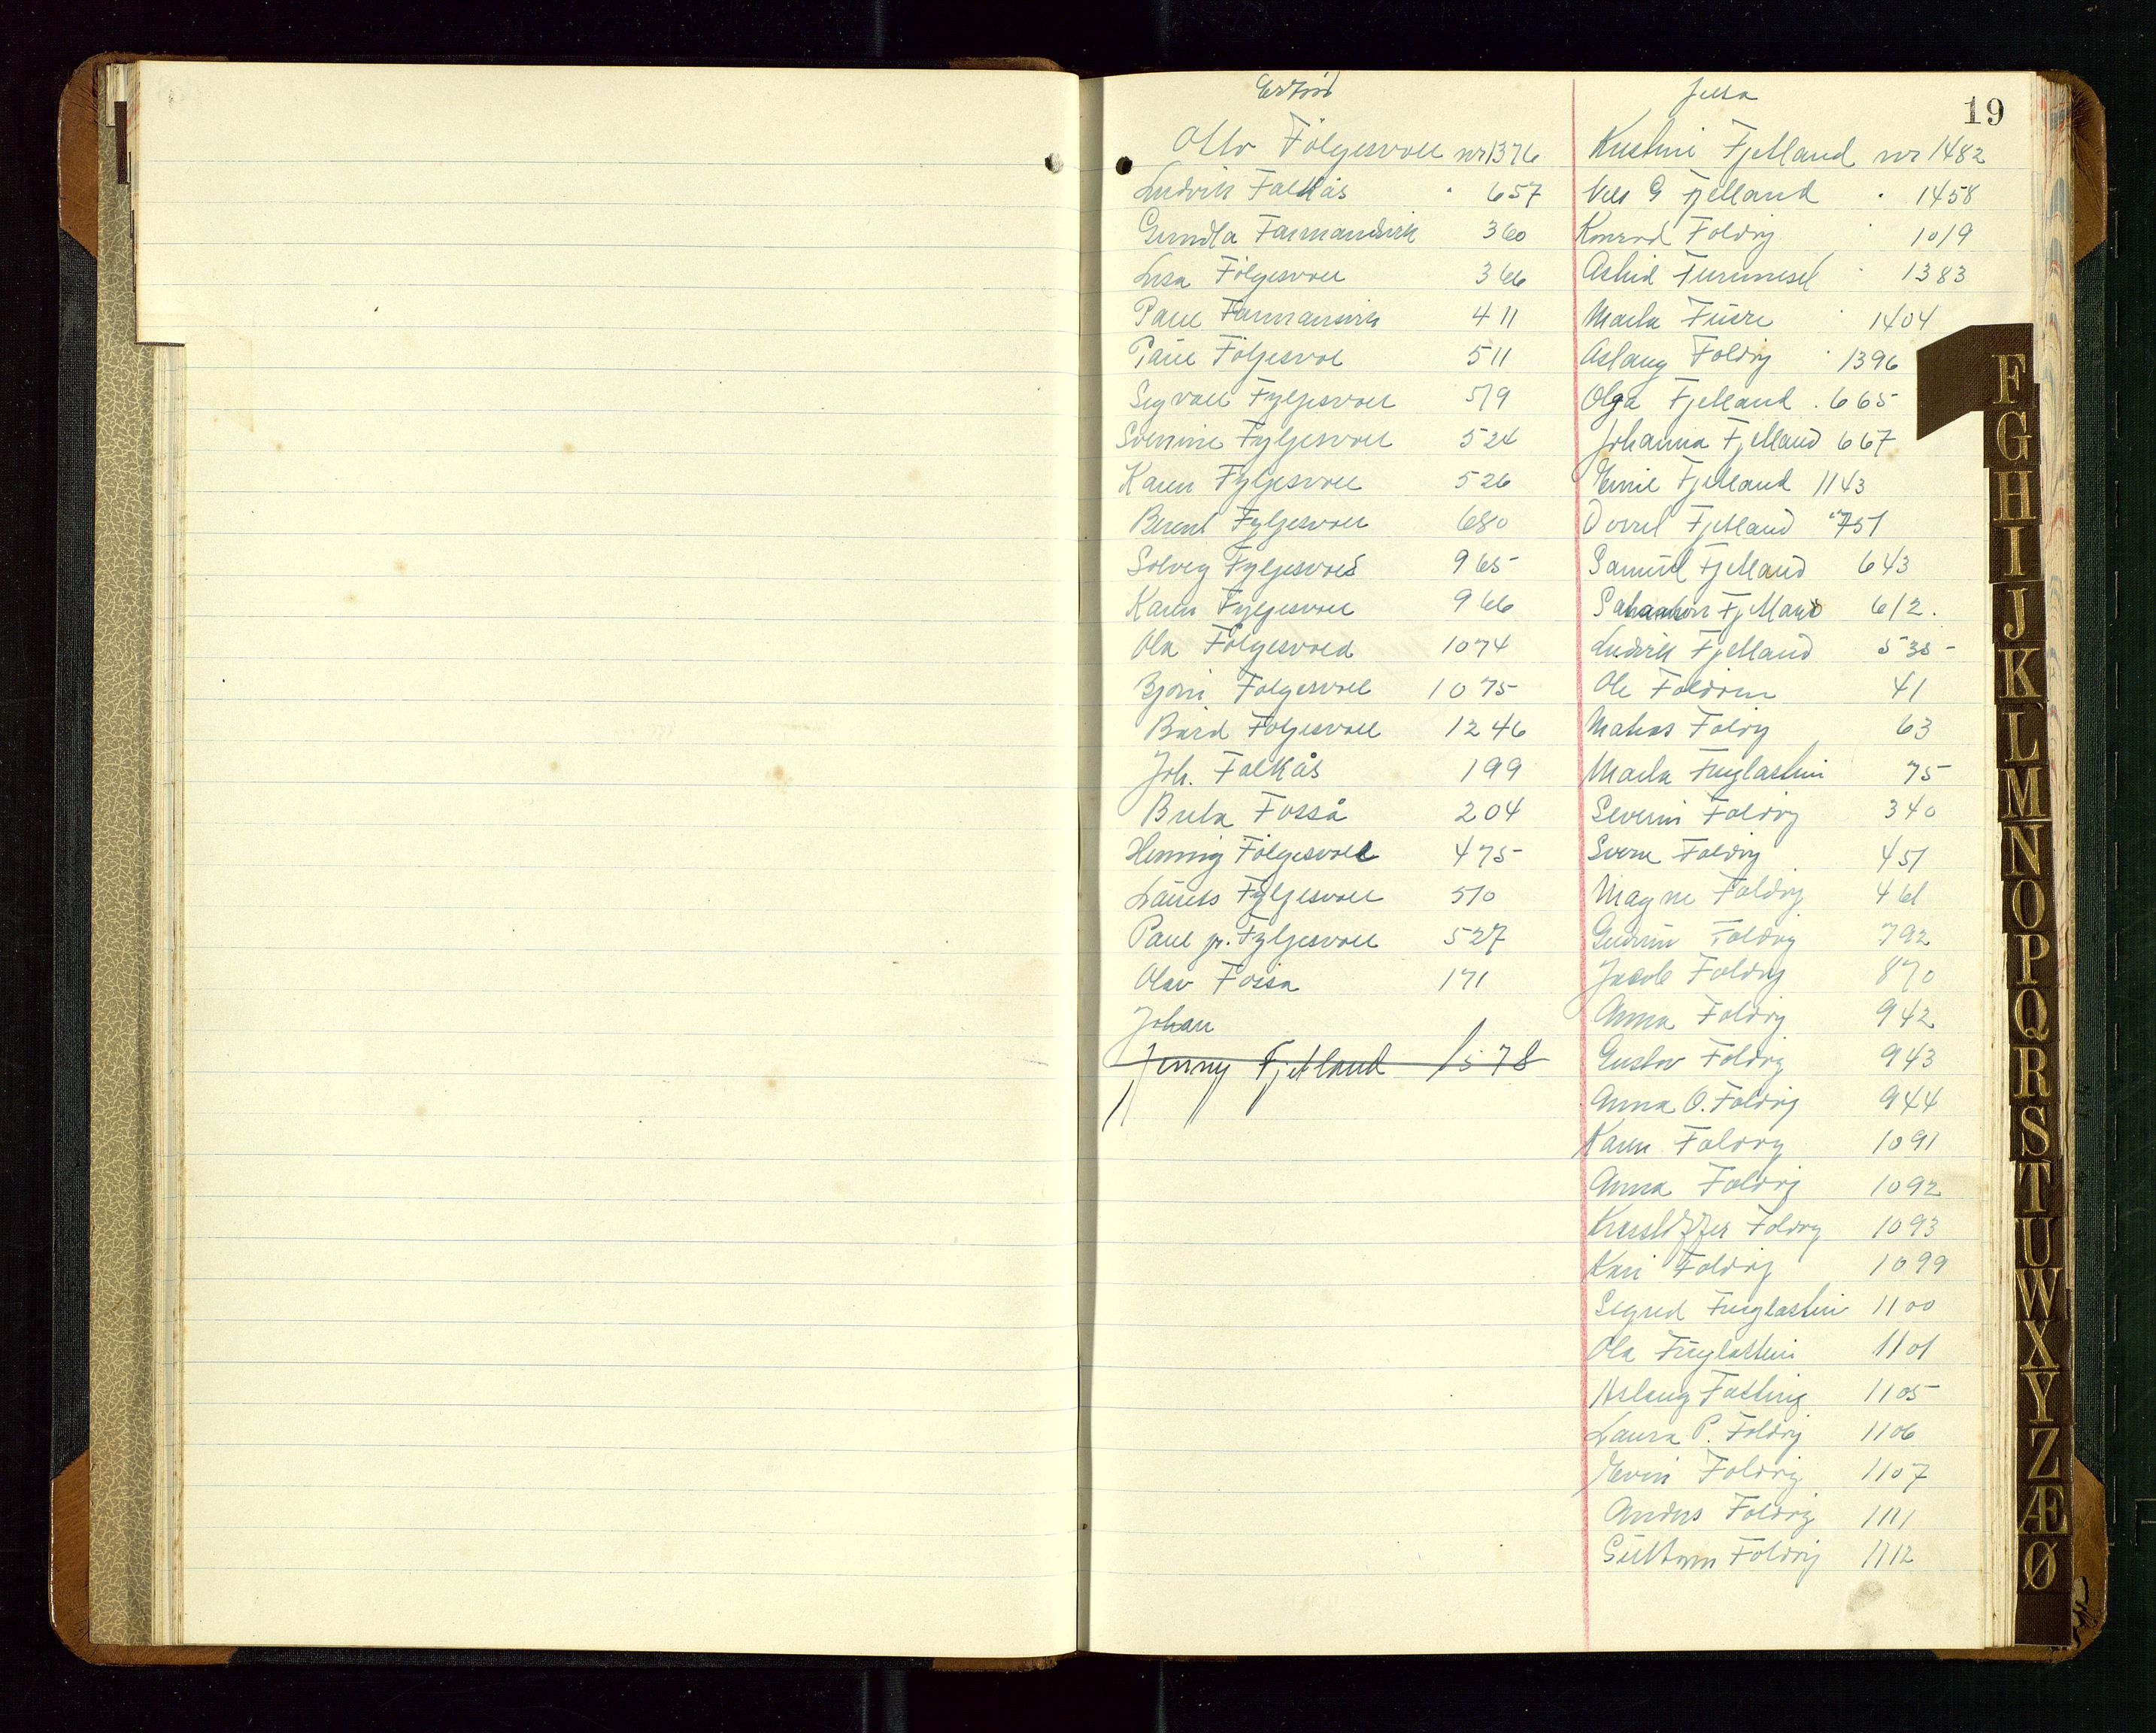 19
Erfjord
Otto Følgesvoll nr 1376
Ludvik Falkås " 657
Gundla Farmannsvik 360
Lisa Følgesvoll 366
Paul Farmannsvik 411
Paul Følgesvol 511
Sigvall Fylgesvoll 519
Svennine Fylgesvoll 524
Karen Fylgesvoll 526
Berent Fylgesvoll 680
Solveig Fylgesvold 965
Karen Fylgesvoll 966
Ola Følgesvold 1074
Bjørn Følgesvoll 1075
Bård Følgesvoll 1246
Joh. Falkås 199
Berta Fosså 204
Henning Følgesvoll 475
Laurits Fylgesvoll 510
Paul jr. Fylgesvoll 527
Olav Fossa 171
Johan
Jenny Fjelland 1578
Jelsa
Kristine Fjelland nr 1482
Nils G Fjelland " 1458
Konrad Foldøy 1019
Astrid 1383
Marta Furre 1404
Aslaug Foldøy 1396
Olga Fjelland . 665
Johanna Fjelland 667
Emil Fjelland 1143
Fjelland 751
Samuel Fjelland 643
Fjelland 612.
Ludvik Fjelland 535
Ole Foldøen 41
Matias Foldøy 63
Marta Fuglastein 75
Severin Foldøy 340
Sverre Foldøy 451
Magne Foldøy 461
Gudrun Foldøy 792
Jacob Foldøy 870
Anna Foldøy 942
Gustav Foldøy 943
Anna O. Foldøy 944
Karen Foldøy 1091
Anna Foldøy 1092
Kristoffer Foldøy 1093
Kari Foldøy 1099
Sigred Fuglastein 1100
Ola Fuglastein 1101
Aslaug Fasting 1105
Laura P. Foldøy 1106
Foldøy 1107
Anders Foldøy 1111
Guttorm Foldøy 1112
F
G
H
I
J
K
L
M
N
O
P
Q
R
S
T
U
W
X
Y
Z
Æ
Ø